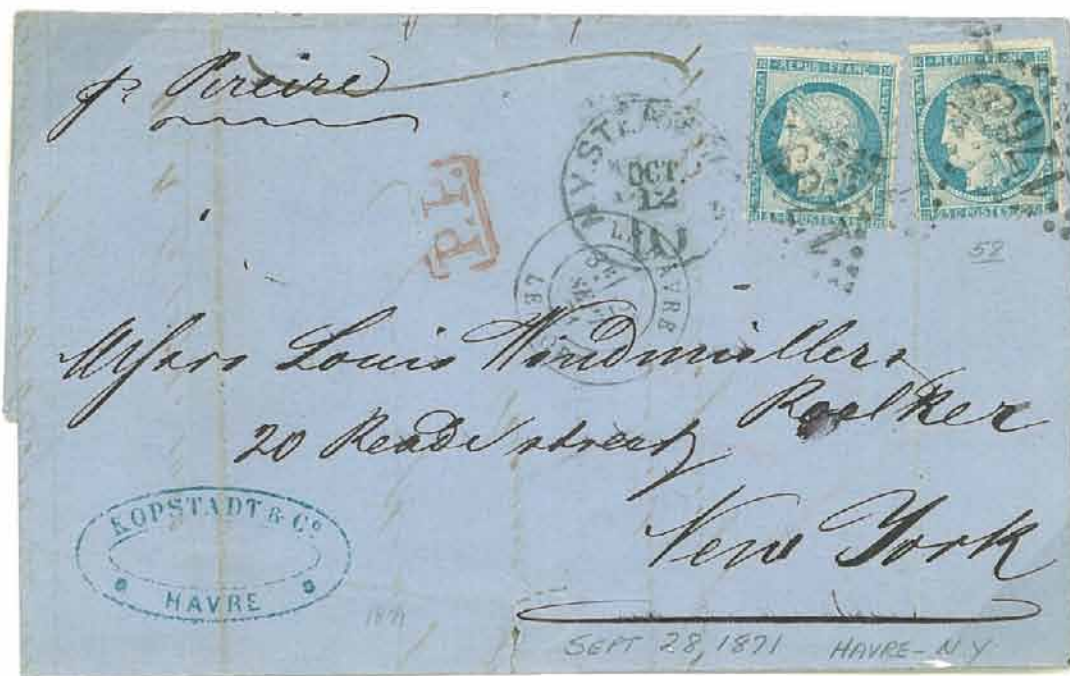 pr Pereire
REPUB FRANC
REPUB FRANC
POSTES
POSTES
N.Y. STEAM
OCT
12
P.P.
LE HAVRE
58
Messrs Louis Windmuller &
Roelker
20 Reade street
New York
KOPSTADT & Co
HAVRE
1871
SEPT 28, 1871 HAVRE-N.Y